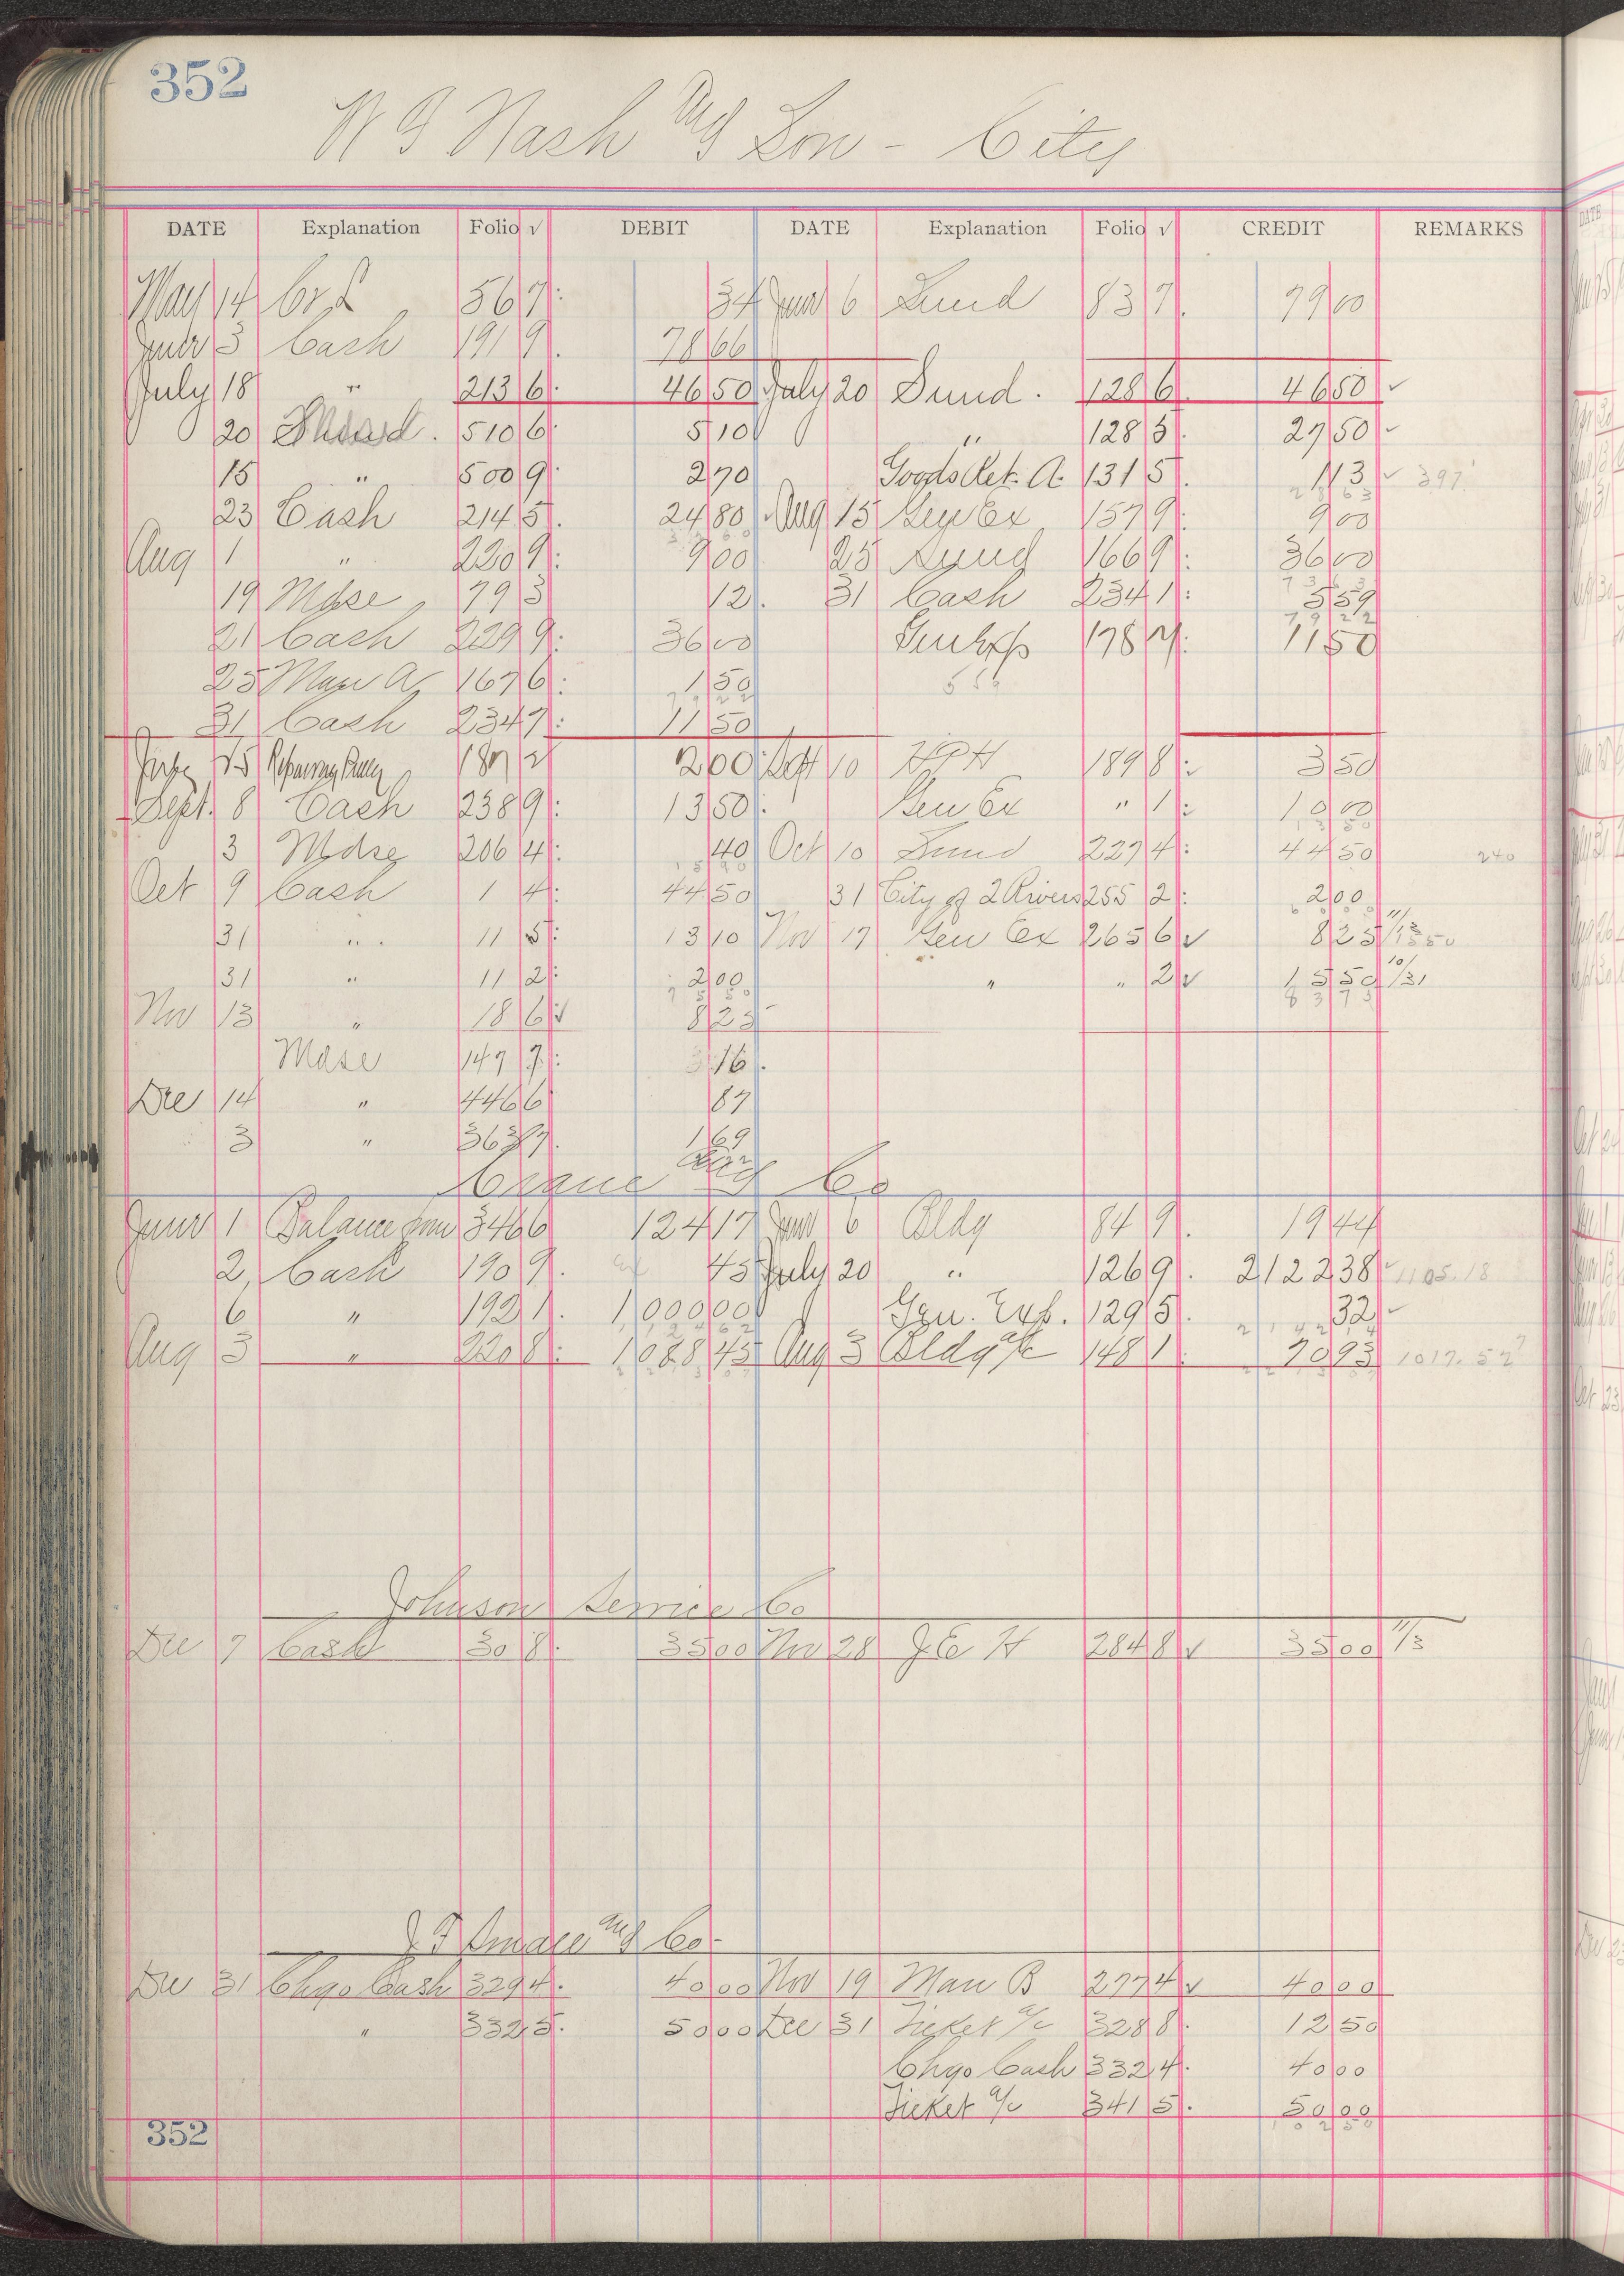 352
W G Nash Mfg Son - City
DATE Explanation Folio √ DEBIT DATE Explanation Folio √ CREDIT REMARKS
May 14 56 7 34 June 6 Lund 83 7 79 00
June 3 Cash 191 9 78 66
July 18 " 213 6 46 50 July 20 Lund. 128 6 46 50 ✓
20 510 6 5 10 " 128 5 27 50 ✓
15 " 500 9 2 70 Goods Ret. A 131 5 1 13 397
23 Cash 214 5 24 80 Aug 15 Gen Ex 157 9 9 00
Aug 1 " 220 9 9 00 25 166 9 36 00
19 Mdse 79 3 12 31 Cash 234 1 3 59
21 Cash 229 9 36 00 178 11 50
25 Man A 167 6 1 50
31 Cash 234 7 11 50
15 2 00 Sept 10 189 8 3 50
Sept. 8 Cash 238 9 13 50 Gen Ex " 1 10 00
3 Mdse 206 4 40 Oct 10 Lund 227 4 44 50 240
Oct 9 Cash 1 4 44 50 31 City of 2 Rivers 255 2 2 00
31 " 11 5 13 10 Nov 17 Gen Ex 265 6 ✓ 8 25
31 " 11 2 2 00 " " 2 ✓ 15 50 10/31
Nov 13 " 18 6 ✓ 8 25
Mdse 149 7 16
Dec 14 " 446 6 87
3 " 363 7 1 69
Crane Mfg Co
June 1 Balance from 346 6 124 17 June 6 Bldg 84 9 19 44
2 Cash 190 9 45 July 20 " 126 9 2122 38 ✓ 1105.18
6 " 192 1 1000 00 Gen. Exp. 129 5 32 ✓
Aug 3 " 220 8 1088 45 Aug 3 Bldg a/c 148 1 70 93 1017.52
Johnson Service Co
Dec 7 Cash 30 8 35 00 Nov 28 284 8 ✓ 35 00 11/3
Mfg Co.
Dec 31 Chgo Cash 329 4 40 00 Nov 19 Man B 277 4 ✓ 40 00
" 332 5 50 00 Dec 31 Ticket a/c 328 8 12 50
Chgo Cash 332 4 40 00
Ticket a/c 341 5 50 00
352